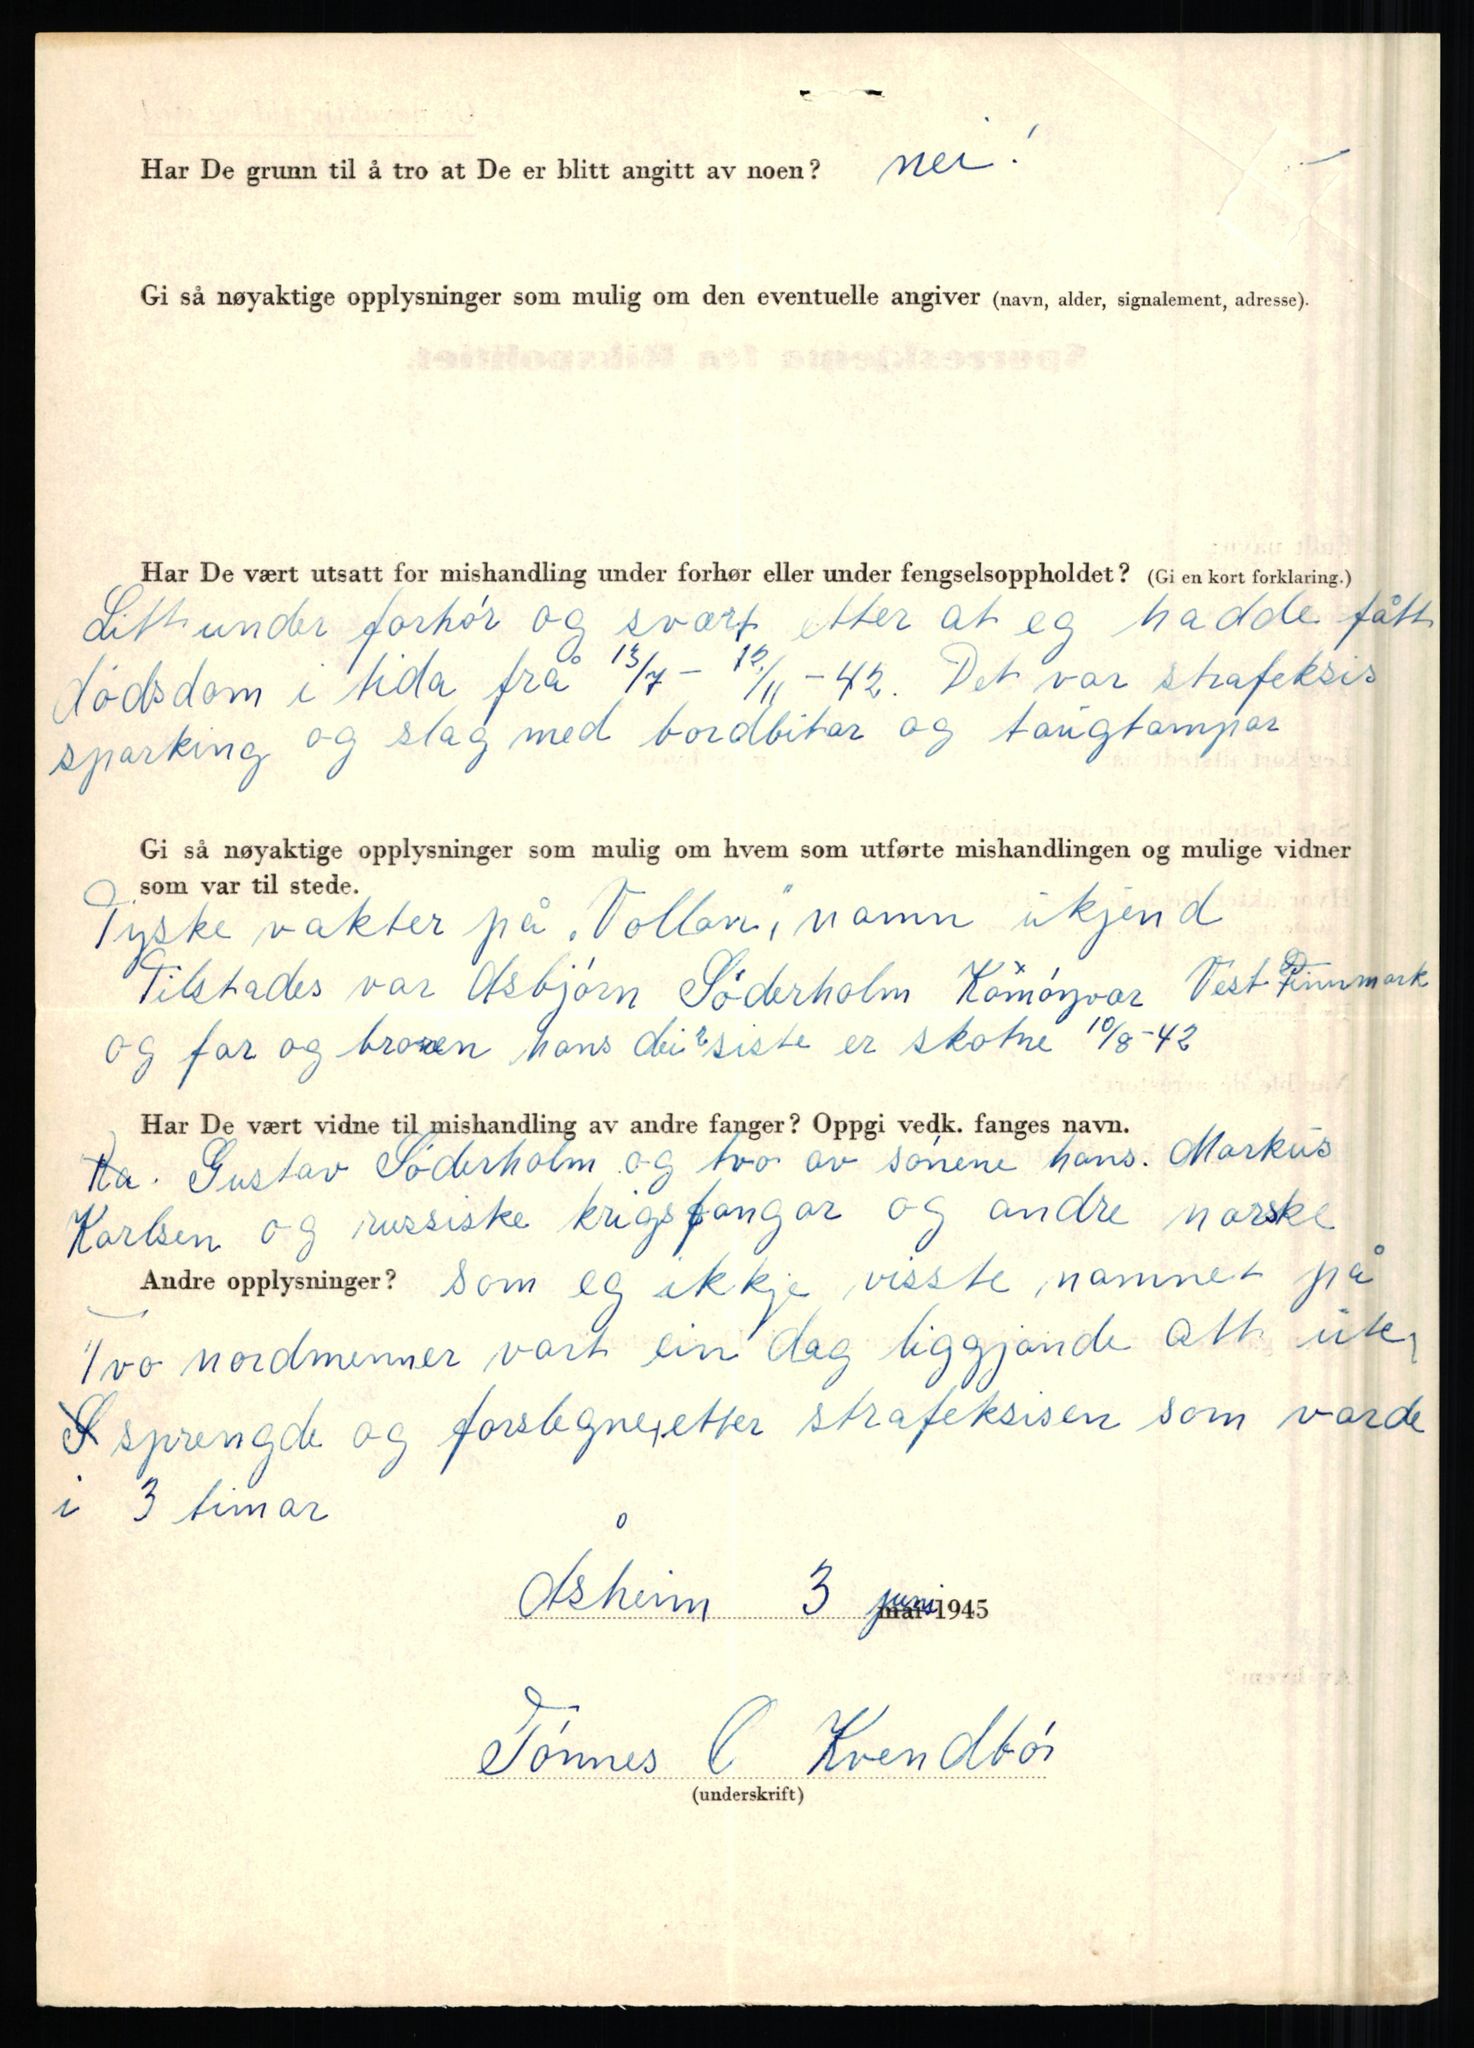 Har De grunn til å tro at De er blitt angitt av noen? nei!
Gi så nøyaktige opplysninger som mulig om den eventuelle angiver (navn, alder, signalement, adresse).
Har De vært utsatt for mishandling under forhør eller under fengselsoppholdet? (Gi en kort forklaring.)
Litt under forhör og svært etter at eg hadde fått
dödsdom i tida frå 13/7 - 12/11 - 42. Det var strafeksis
sparking og slag med bordbitar og taugtampar
Gi så nøyaktige opplysninger som mulig om hvem som utførte mishandlingen og mulige vidner
som var til stede.
Tyske vakter på „Vollan", namn ukjend
Tilstades var Asbjörn Söderholm Vest Finnmark
og far og broren hans dei 2 siste er skotne 10/8-42
Har De vært vidne til mishandling av andre fanger? Oppgi vedk. fanges navn.
Ka. Gustav Söderholm og tvo av sönene hans. Markus
Karlsen og russiske krigsfangar og andre norske
Andre opplysninger? som eg ikkje visste namnet på
Tvo nordmenner vart ein dag liggjande att ute,
sprengde og forslegne, etter strafeksisen som varde
i 3 timar
Åsheim 3 juni mai 1945
Tönnes O Kvendbö
(underskrift)